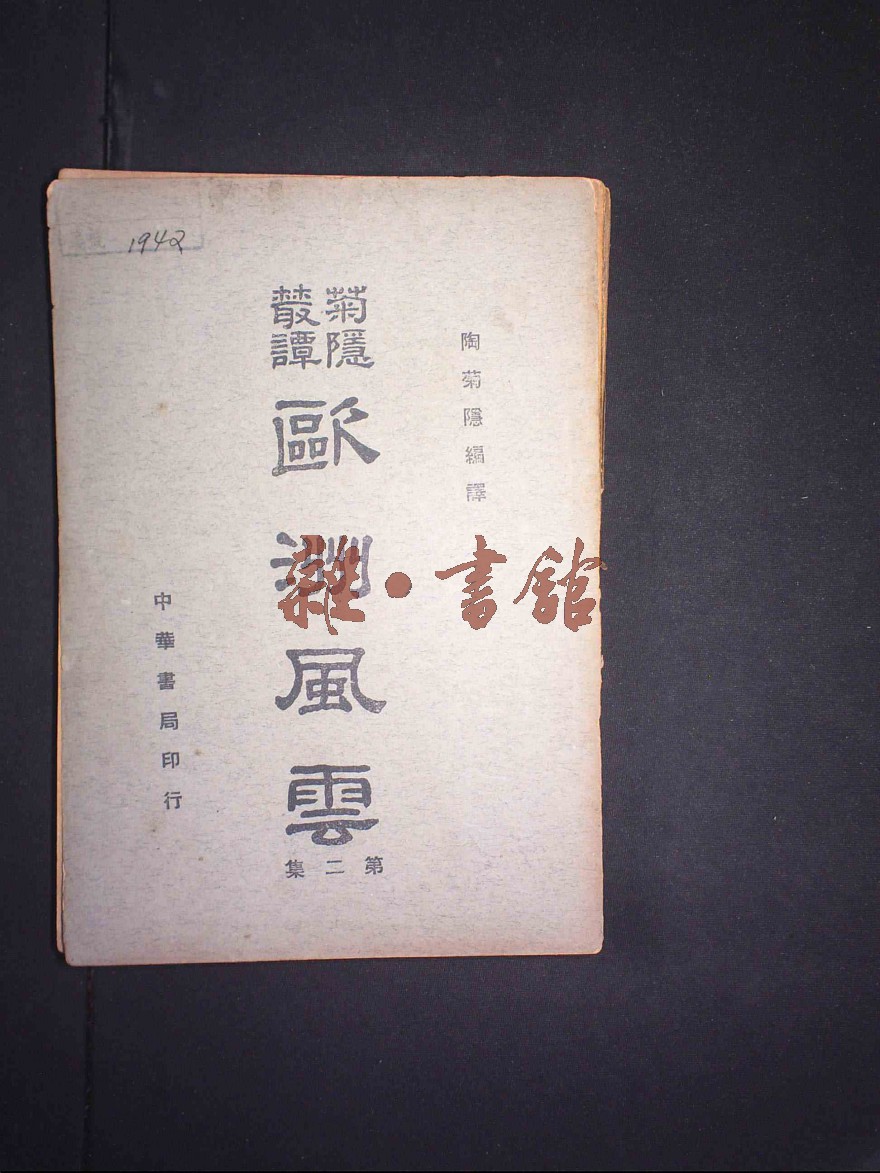 1942
陶菊隱編譯
菊隱
叢譚
歐洲風雲
第二集
中華書局印行
雜·書館